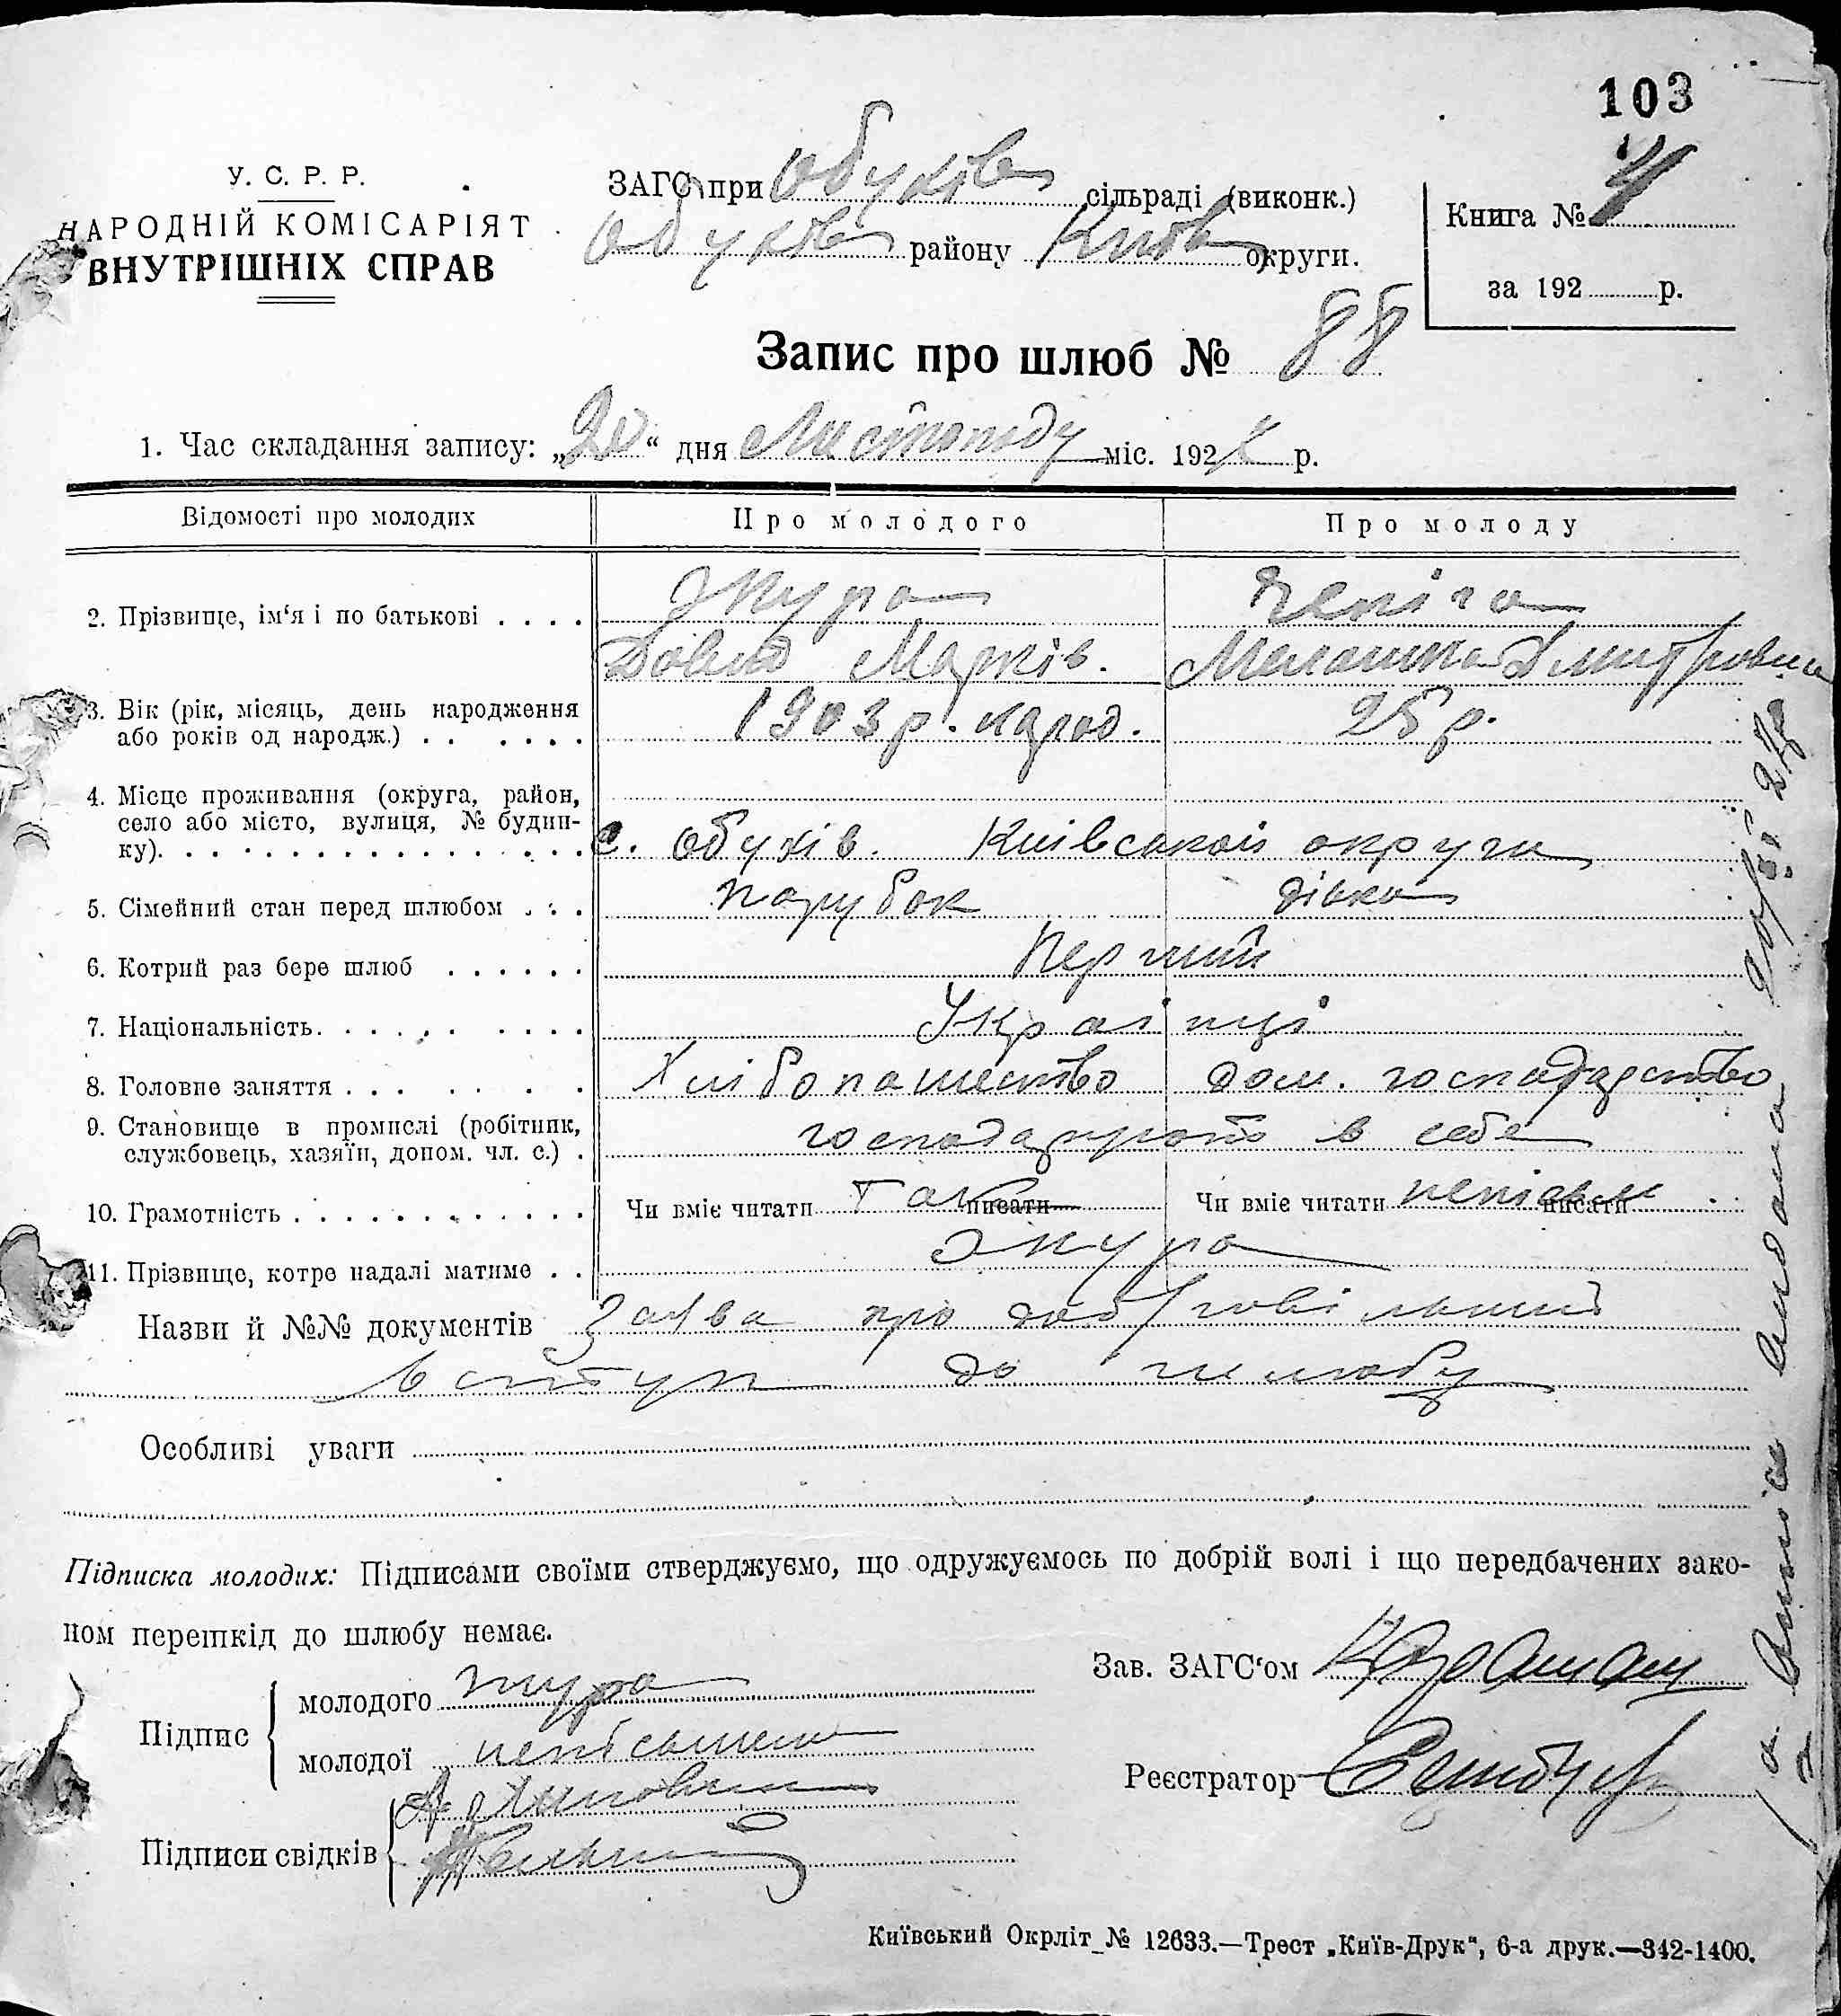 103
У. С. Р. Р.
НАРОДНІЙ КОМІСАРІЯТ
ВНУТРІШНІХ СПРАВ
ЗАГС при Обухів сільраді (виконк.)
Обухів району Київ округи.
Книга №
за 192 р.
Запис про шлюб № 88
1. Час складання запису: „20“ дня Листопаду міс. 192 р.
Відомості про молодих Про молодого Про молоду
2. Прізвище, ім‘я і по батькові . . . . Шкура Чепіга
Давид Марків. Малашка Дмитровна
3. Вік (рік, місяць, день народження або років од народж.) . . . . . . 1903 р. народ. 25 р.
4. Місце проживання (округа, район, село або місто, вулиця, № будин-ку). с. Обухів. Київської округи
5. Сімейний стан перед шлюбом . . . парубок дівка
6. Котрий раз бере шлюб . . . . . . Перший
7. Національність. . . . . . . . . . Українці
8. Головне заняття . . . . . . . . Хліборопашество дом. господарство
9. Становище в промислі (робітник, службовець, хазяїн, допом. чл. с.) . господарюють в себе
10. Грамотність . . . . . . . . . . . . Чи вміє читати так писати Чи вміє читати непісьм писати
11. Прізвище, котре надалі матиме . . Шкура
Назви й №№ документів Заява про добровільний
вступ до шлюбу
Особливі уваги
Підписка молодих: Підписами своїми стверджуємо, що одружуємось по добрій волі і що передбачених зако-
ном перешкід до шлюбу немає.
Зав. ЗАГС‘ом
Підпис
молодого Шкура
молодої непісьмена
Реєстратор
Підписи свідків
Київський Окрліт № 12633.—Трест „Київ-Друк“, 6-а друк.—342-1400.